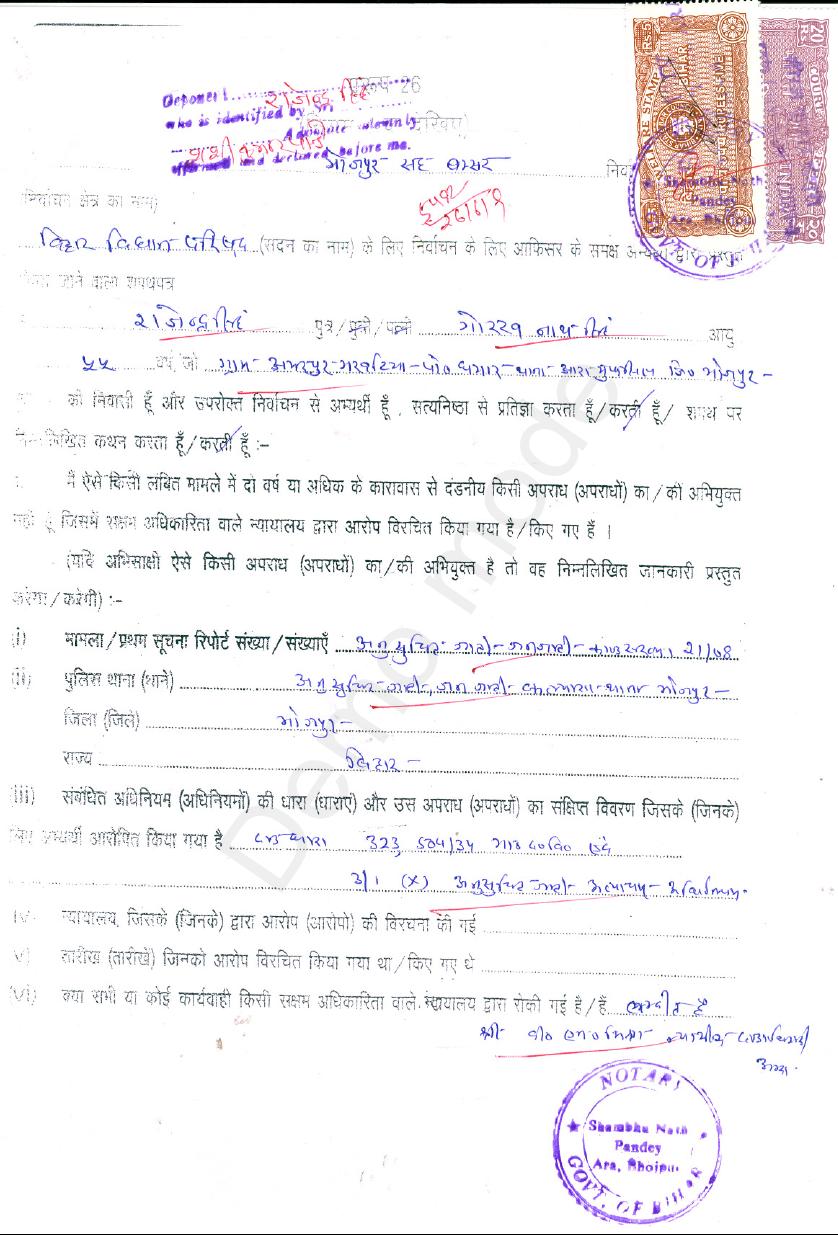 प्ररूप 26
Deponent राजेन्द्र सिंह
who is identified by
Advocate solemnly
affirmed and declared before me.
भोजपुर सह बक्सर
निर्वाचन क्षेत्र का नाम)
बिहार विधान परिषद (सदन का नाम) के लिए निर्वाचन के लिए आफिसर के समक्ष अभ्यर्थी द्वारा प्रस्तुत
किया जाने वाला शपथपत्र
राजेन्द्र सिंह पुत्र/पुत्री/पत्नी गोरख नाथ सिंह आयु
५५ वर्ष, जो ग्राम- अमरपुर- पो० धमार- थाना- आरा मुफसिल जि० भोजपुर-
की निवासी हूँ और उपरोक्त निर्वाचन से अभ्यर्थी हूँ , सत्यनिष्ठा से प्रतिज्ञा करता हूँ/करती हूँ/ शपथ पर
निम्नलिखित कथन करता हूँ/करती हूँ :-
मैं ऐसे किसी लंबित मामले में दो वर्ष या अधिक के कारावास से दंडनीय किसी अपराध (अपराधों) का/की अभियुक्त
नहीं हूँ जिसमें सक्षम अधिकारिता वाले न्यायालय द्वारा आरोप विरचित किया गया है/किए गए हैं ।
(यदि अभिसाक्षी ऐसे किसी अपराध (अपराधों) का/की अभियुक्त है तो वह निम्नलिखित जानकारी प्रस्तुत
करेगा/करेगी) :-
(i) मामला/प्रथम सूचना रिपोर्ट संख्या/संख्याएँ अनुसूचित जाति- जनजाति- काण्ड संख्या 21/08
(ii) पुलिस थाना (थाने) अनुसूचित- जाति-, जन जाति- कल्याण- थाना भोजपुर-
जिला (जिले) भोजपुर-
राज्य बिहार-
(iii) संबंधित अधिनियम (अधिनियमों) की धारा (धाराएं) और उस अपराध (अपराधों) का संक्षिप्त विवरण जिसके (जिनके)
लिए अभ्यर्थी आरोपित किया गया है धारा 323, 504/34 भा० द० वि० एवं
3/1 (x) अनुसूचित जाति- अत्याचार- अधिनियम-
iv- न्यायालय, जिसके (जिनके) द्वारा आरोप (आरोपो) की विरचना की गई
v) तारीख (तारीखें) जिनको आरोप विरचित किया गया था/किए गए थे
(vi) क्या सभी या कोई कार्यवाही किसी सक्षम अधिकारिता वाले न्यायालय द्वारा रोकी गई है/हैं लम्बित है
श्री- मिश्रा न्यायिक दण्डाधिकारी
आरा-
NOTARY
Shambhu Nath
Pandey
Ara, Bhojpur
GOVT. OF BIHAR
Shambhu Nath
Pandey
Ara, Bhojpur
GOVT. OF
Rs.5
BIHAR
RUPEES FIVE
20
Rs.
COURT
INDIA
Demo mode